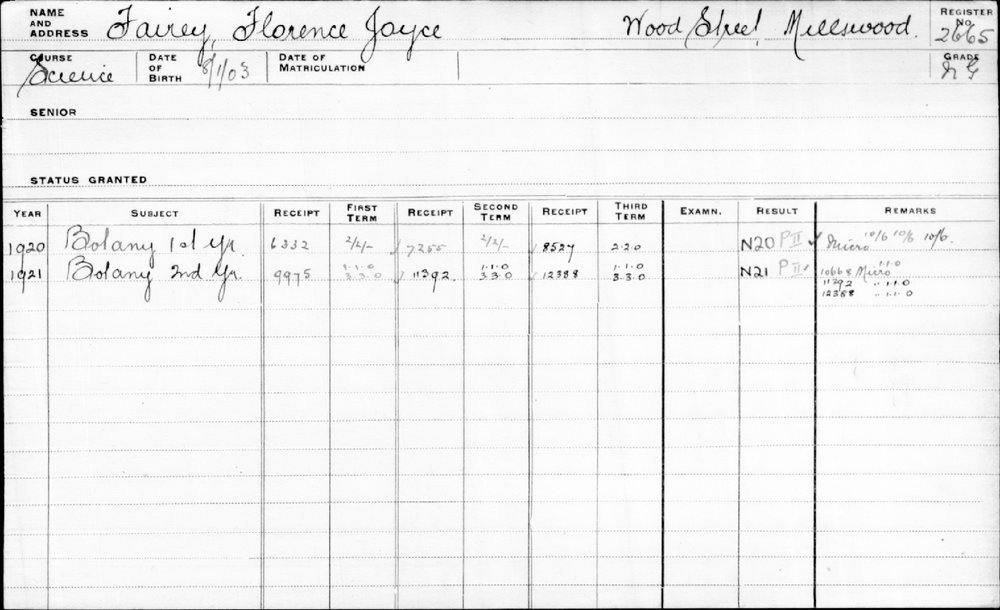 NAME AND ADDRESS Fairey, Florence Joyce Wood Street, Millswood. REGISTER No. 2665
COURSE Science DATE OF BIRTH 8/1/03 DATE OF MATRICULATION GRADE N G
SENIOR
STATUS GRANTED
YEAR SUBJECT RECEIPT FIRST TERM RECEIPT SECOND TERM RECEIPT THIRD TERM EXAMN. RESULT REMARKS
1920 Botany 1st Yr. 6332 2/2/- 7255 2/2/- 8527 2-2-0 N20 P II ✓ Micro 10/6 10/6 10/6.
1921 Botany 2nd Yr. 9975 1-1-0 3-3-0 11392 1-1-0 3-3-0 12388 1-1-0 3-3-0 N21 P II ✓ 10668 Micro 1-1-0
11392 " 1-1-0
12388 " 1-1-0